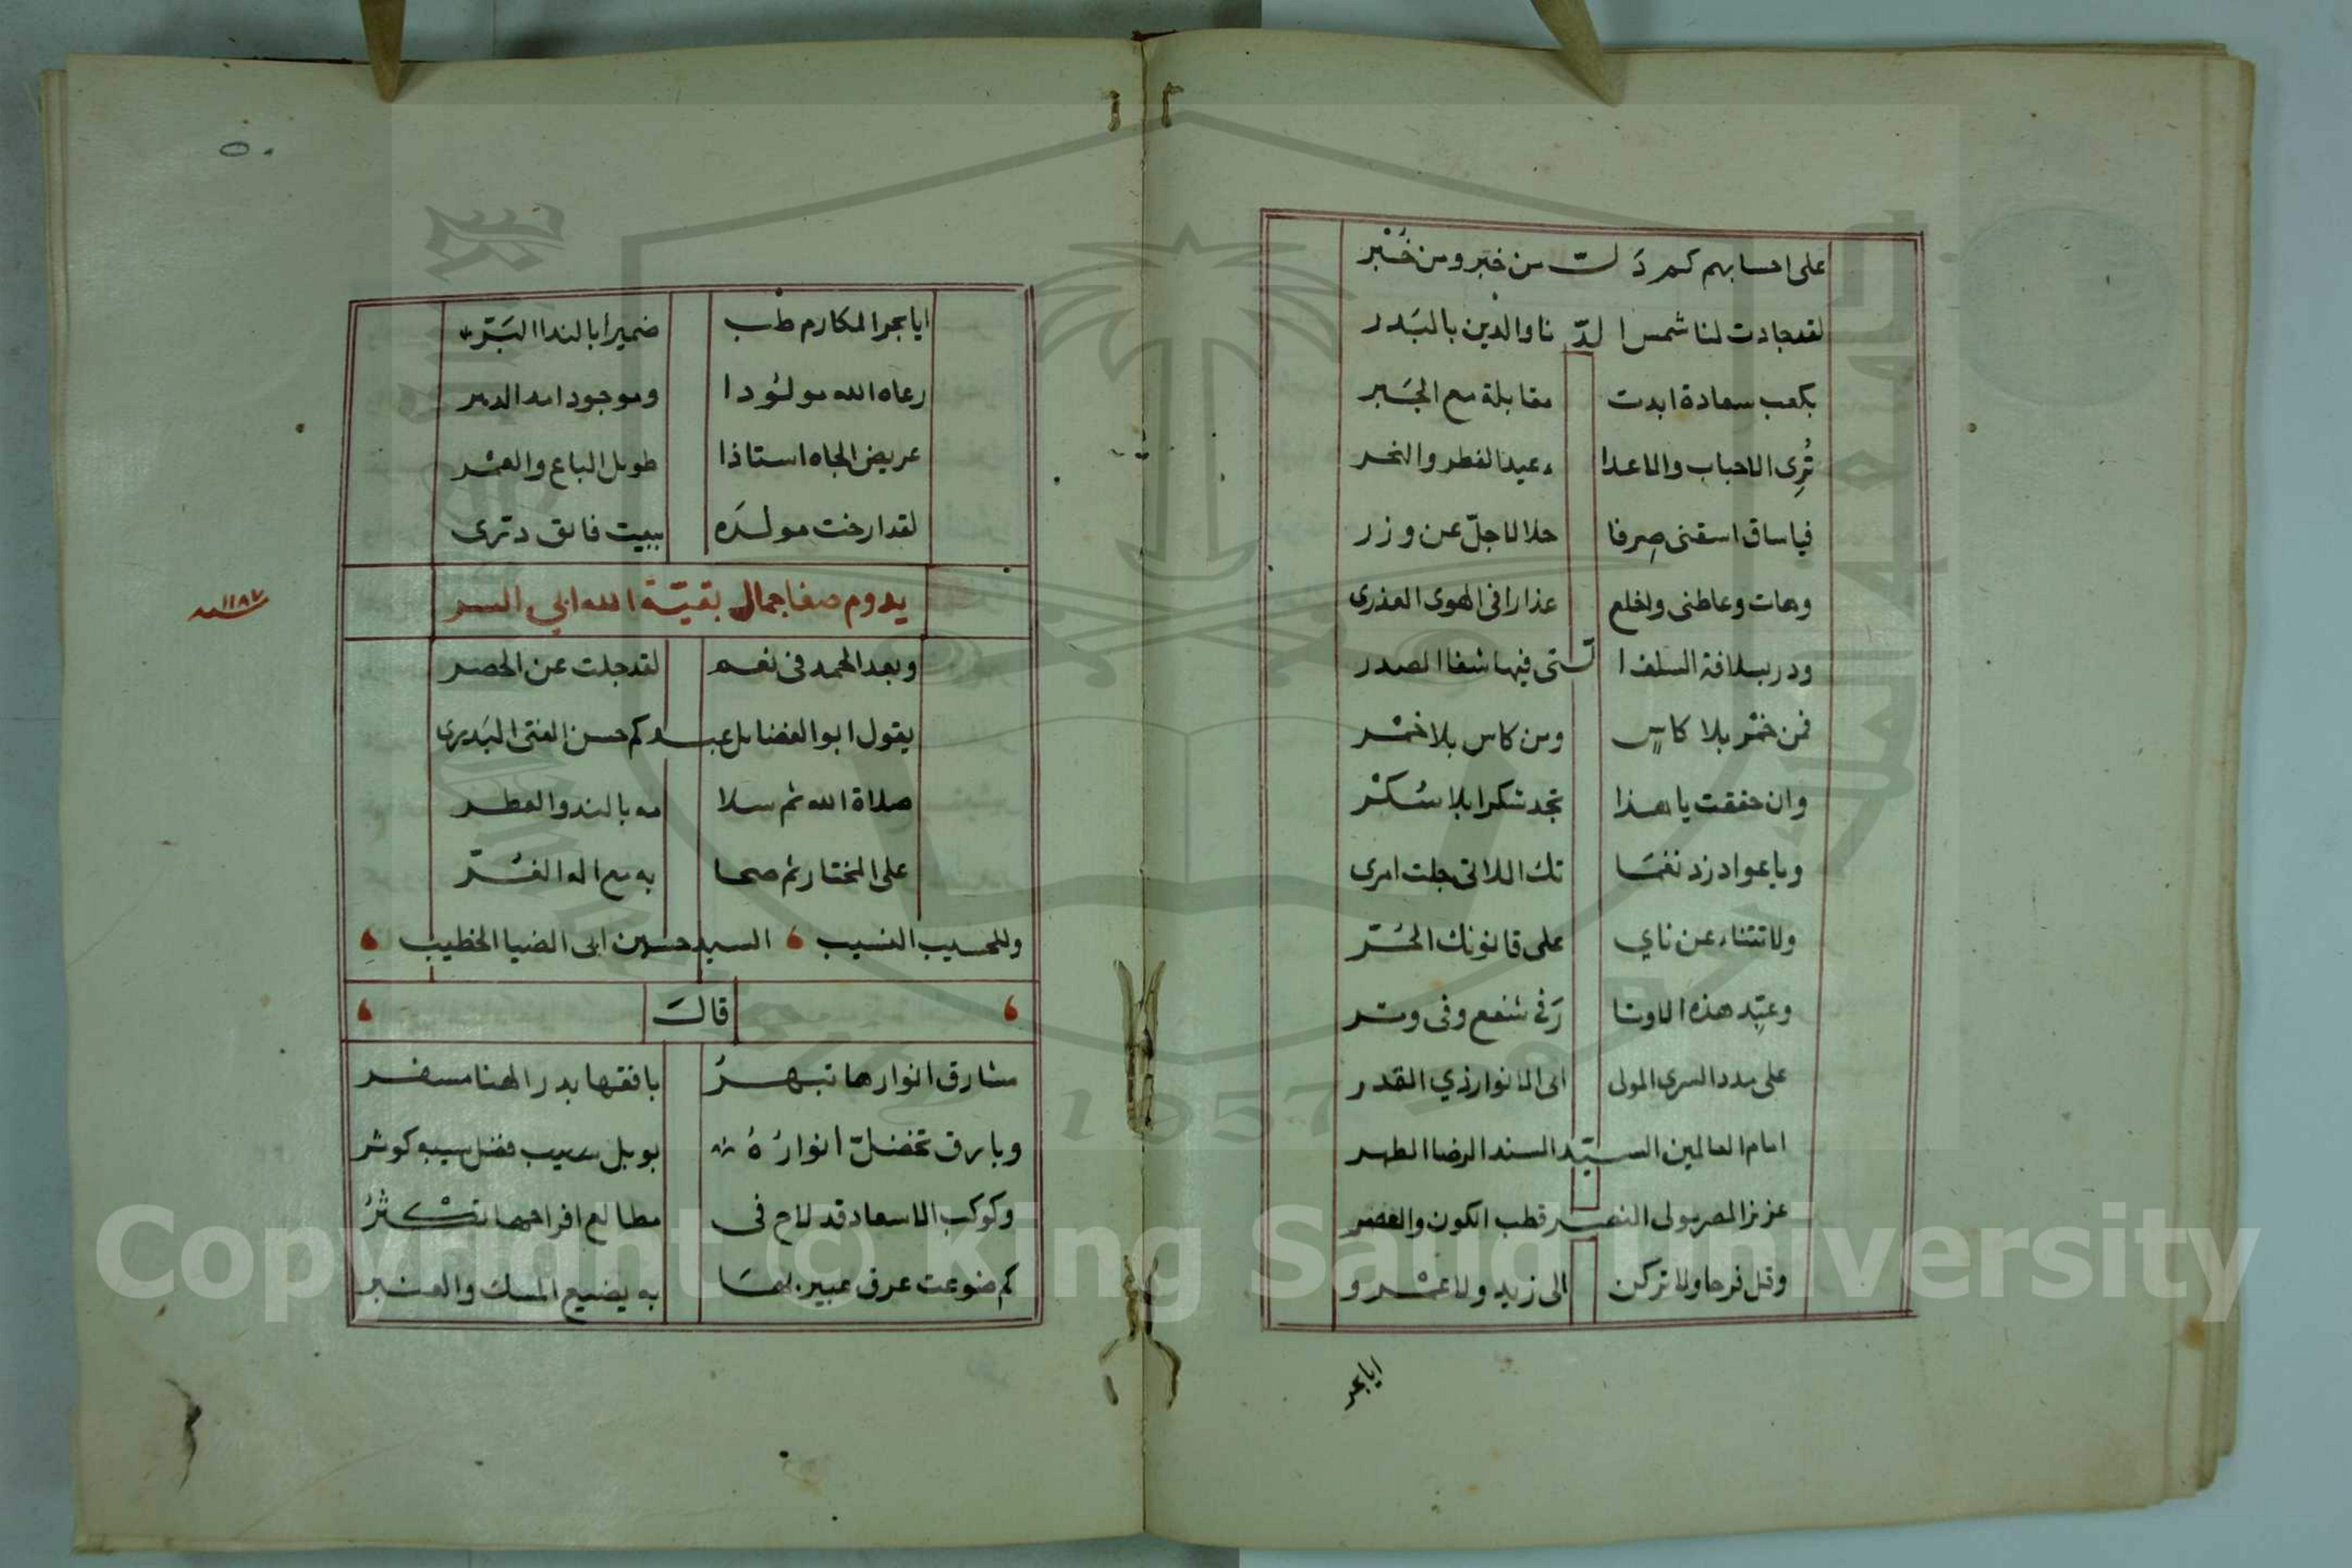 على احسابهم كم دَلت من خبر ومن خُبْر
لقد جادت لنا شمس الدّنا والدين بالبَدر
بكعب سعادة ابدت مقابلة مع الجَبر
تُرِى الاحباب والاعدا ء عيد الفطر والنحر
فيا ساق اسقنى صِرفا حلالا جلّ عن وزر
وهات وعاطنى واخلع عذارا فى الهوى العذرى
ودر بسلافة السلف ا لّتى فيها شفا الصدر
فمن خمْر بلا كاسٍ ومن كاس بلا خمْر
وان حققت يا هذا تجد شكرا بلا سُكْر
ويا عواد زد نغمَا تك اللاتى جلت امرى
ولا تتناء عن ناي على قانونك الحُرّ
وعبّد هذه الاوتا رَ فى شفع وفى وتر
على مدد السرى المولى ابى الانوار ذي القدر
امام العالمين السيّد السند الرضا الطهر
عزيز المصر مولى النصر قطب الكون والعصر
وقل فرحا ولا تركن الى زيد ولا عمْرو
ايا بحر
٥٠
ايا بحر المكارم طب ضميرا بالندا البَرّ
رعاه الله مولُودا وموجودا مد الدهر
عريض الجاه استاذا طويل الباع والعمْر
لقد ارخت مولدَه ببيت فائق دترى
يدوم صفا جمال بقيّة الله ابى السر
سنة ١١٨٧
وبعد الحمد فى نعم لقد جلت عن الحصر
يقول ابو الفضايل عبدكم حسن الفتى البَديرى
صلاة الله ثم سلا مه بالند والعطر
على المختار ثم صحا به مع اله الغُرّ
وللحسيب النسيب السيد حسين ابى الضيا الخطيب
قالَ
مشارق انوارها تبهرُ بافقها بدر الهنا مسفر
وبارق تخضلّ انوارُهُ بوبل سيب فضل سيبه كوثر
وكوكب الاسعاد قد لاح فى مطالع افراحها تكْثرُ
كم ضوعت عرق عبير بهمَا به يضيع المسك والعنبر
Copyright © King Saud University
1957